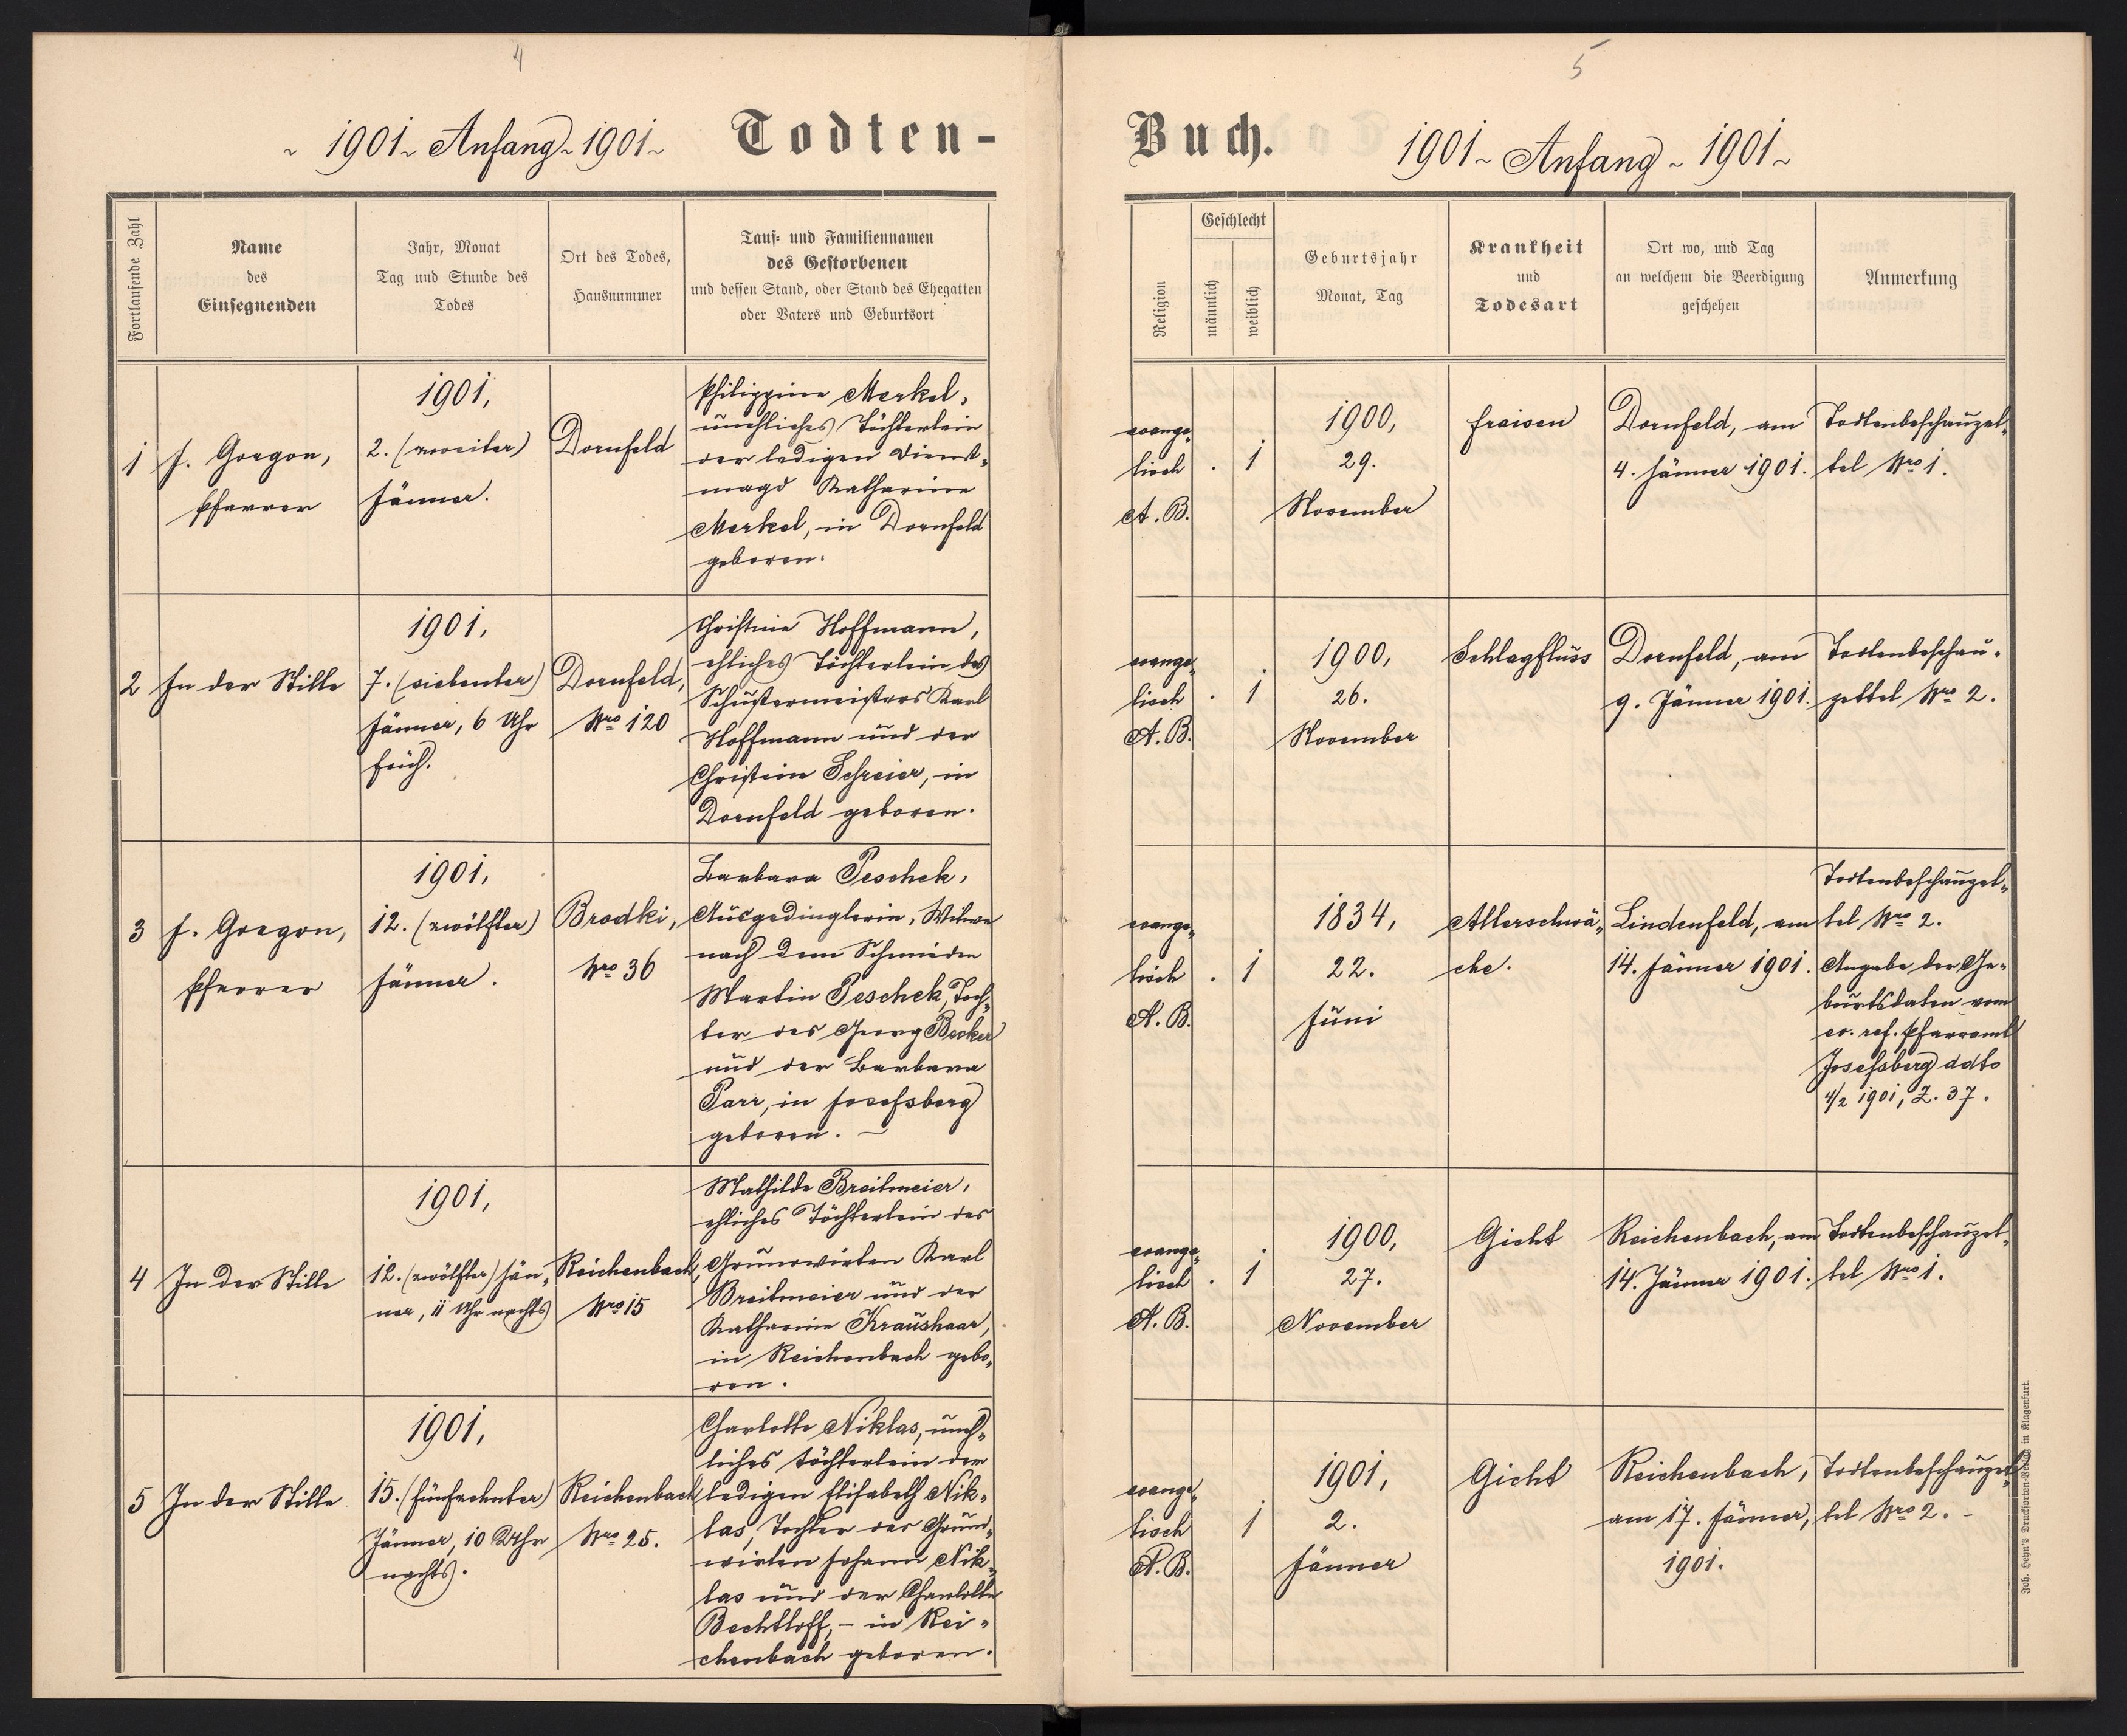 4
~ 1901 ~ Anfang ~ 1901 ~ Todten-
Fortlaufende Zahl
Name
des
Einsegnenden
Jahr, Monat
Tag und Stunde des
Todes
Ort des Todes,
Hausnummer
Tauf- und Familiennamen
des Gestorbenen
und dessen Stand, oder Stand des Ehegatten
oder Vaters und Geburtsort
1
J. Gorgon,
Pfarrer
1901,
2. (zweiter)
Jänner.
Dornfeld
Philippine Merkel,
unehliches Töchterlein
der ledigen Dienst-
magd Katharine
Merkel, in Dornfeld
geboren.
2
In der Stille
1901,
7. (siebenter)
Jänner, 6 Uhr
früh.
Dornfeld,
Nro 120
Christine Hoffmann,
ehliches Töchterlein des
Schustermeisters Karl
Hoffmann und der
Christine Schreier, in
Dornfeld geboren.
3
J. Gorgon,
Pfarrer
1901,
12. (zwölfter)
Jänner.
Brodki,
Nro 36
Barbara Peschek,
Ausgedinglerin, Witwe
nach dem Schmieden
Martin Peschek, Toch-
ter des Georg Becker
und der Barbara
Parr, in Josefsberg
geboren. —
4
In der Stille
1901,
12. (zwölfter) Jän-
ner, 11 Uhr nachts
Reichenbach,
Nro 15
Mathilde Breitmeier,
ehliches Töchterlein des
Grundwirten Karl
Breitmeier und der
Katharine Kraushaar,
in Reichenbach gebo-
ren.
5
In der Stille
1901,
15. (fünfzehnter)
Jänner, 10 Uhr
nachts.
Reichenbach
Nro 25.
Charlotte Niklas, uneh-
liches Töchterlein der
ledigen Elisabeth Nik-
las, Tochter des Grund-
wirten Johann Nik-
las und der Charlotte
Bechtloff, – in Rei-
chenbach geboren.
5
Buch. 1901 ~ Anfang ~ 1901 ~
Religion
Geschlecht
männlich
weiblich
Geburtsjahr
Monat, Tag
Krankheit
und
Todesart
Ort wo, und Tag
an welchem die Beerdigung
geschehen
Anmerkung
evange-
lisch
A. B.
. 1
1900,
29.
November
Fraisen
Dornfeld, am
4. Jänner 1901.
Todtenbeschauzet-
tel Nro 1.
evange-
lisch
A. B.
. 1
1900,
26.
November
Schlagfluss
Dornfeld, am
9. Jänner 1901.
Todtenbeschau-
zettel Nro 2.
evange-
lisch
A. B.
. 1
1834,
22.
Juni
Altersschwä-
che.
Lindenfeld, am
14. Jänner 1901.
Todtenbeschauzet-
tel Nro 2.
Angabe der Ge-
burtsdaten vom
ev. ref. Pfarramt
Josefsberg ddto
4/2 1901, Z. 37.
evange-
lisch
A. B.
. 1
1900,
27.
November
Gicht
Reichenbach, am
14. Jänner 1901.
Todtenbeschauzet-
tel Nro 1.
evange-
lisch
A. B.
1
1901,
2.
Jänner
Gicht
Reichenbach,
am 17. Jänner,
1901.
Todtenbeschauzet-
tel Nro 2. –
Joh. Heyn's Drucksorten-Verlag in Klagenfurt.